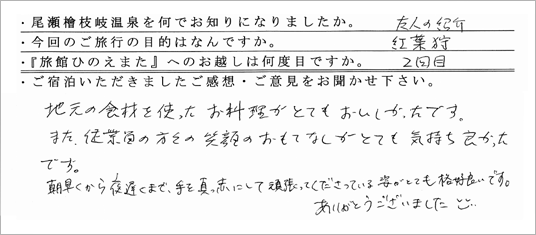 ・尾瀬檜枝岐温泉を何でお知りになりましたか。 友人の紹介
・今回のご旅行の目的はなんですか。 紅葉狩
・『旅館ひのえまた』へのお越しは何度目ですか。 2回目
・ご宿泊いただきましたご感想・ご意見をお聞かせ下さい。
地元の食材を使ったお料理がとてもおいしかったです。
また、従業員の方々の笑顔のおもてなしがとても気持ち良かった
です。
朝早くから夜遅くまで、手を真っ赤にして頑張ってくださっている姿がとても格好良いです。
ありがとうございました